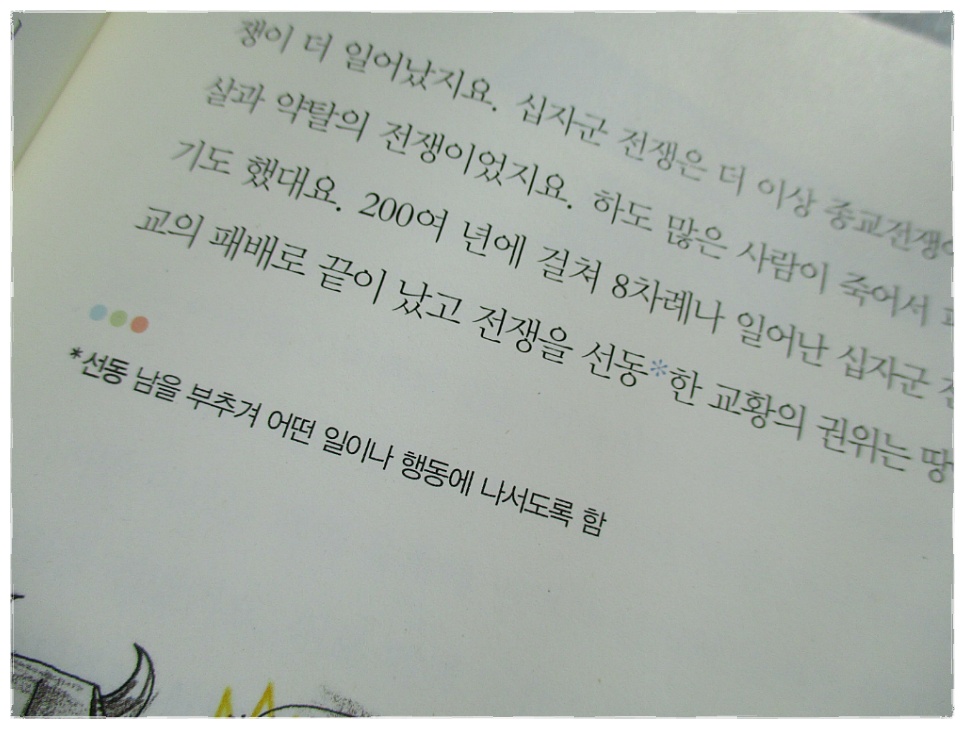 쟁이 더 일어났지요. 십자군 전쟁은 더 이상 종교전쟁이
살과 약탈의 전쟁이었지요. 하도 많은 사람이 죽어서
기도 했대요. 200여 년에 걸쳐 8차례나 일어난 십자군
교의 패배로 끝이 났고 전쟁을 선동*한 교황의 권위는 땅
*선동 남을 부추겨 어떤 일이나 행동에 나서도록 함